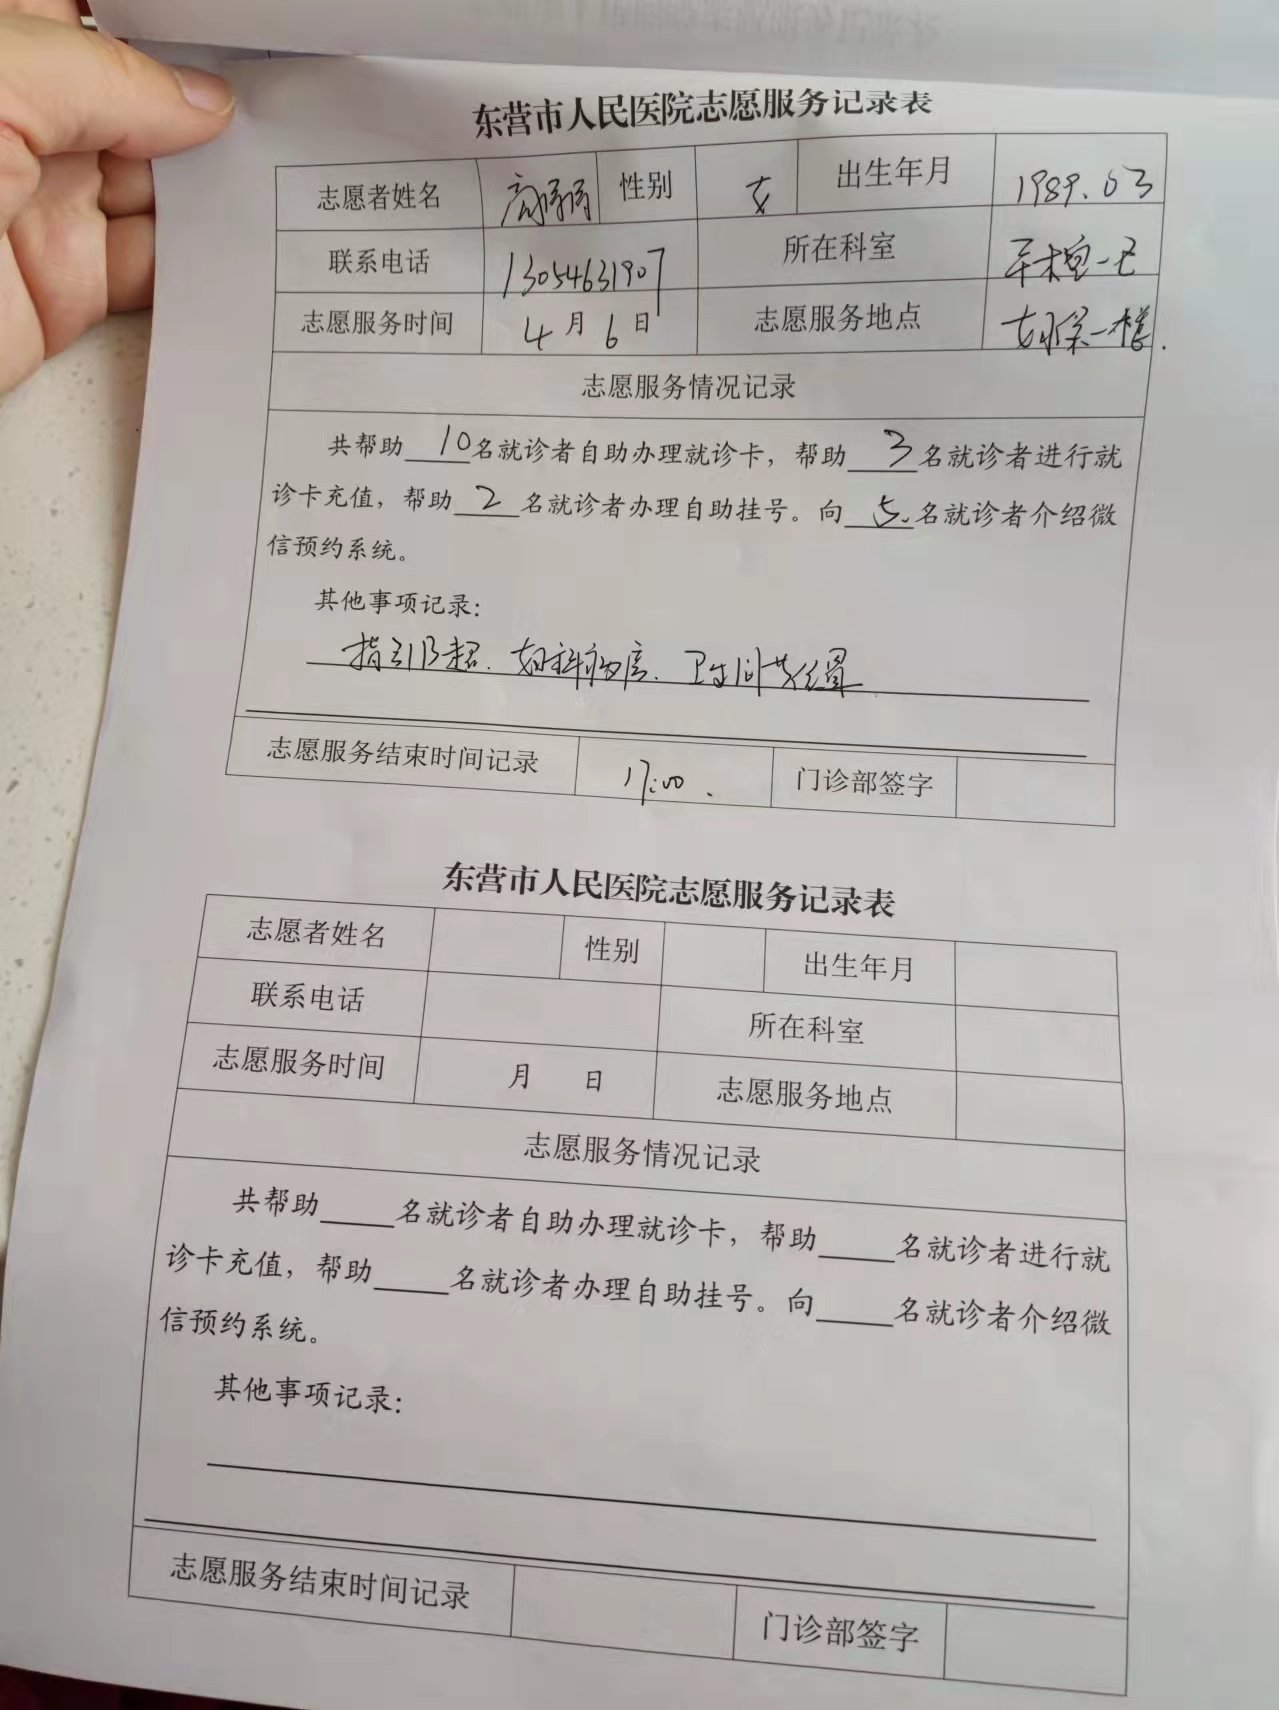 东营市人民医院志愿服务记录表
志愿者姓名 性别 女 出生年月 1989.03
联系电话 13054631907 所在科室
志愿服务时间 4月6日 志愿服务地点 妇保一楼.
志愿服务情况记录
共帮助10名就诊者自助办理就诊卡，帮助3名就诊者进行就
诊卡充值，帮助2名就诊者办理自助挂号。向5.名就诊者介绍微
信预约系统。
其他事项记录：
指引B超. 妇科病房. 卫生间等位置
志愿服务结束时间记录 17:00. 门诊部签字
东营市人民医院志愿服务记录表
志愿者姓名 性别 出生年月
联系电话 所在科室
志愿服务时间 月 日 志愿服务地点
志愿服务情况记录
共帮助____名就诊者自助办理就诊卡，帮助____名就诊者进行就
诊卡充值，帮助____名就诊者办理自助挂号。向____名就诊者介绍微
信预约系统。
其他事项记录：
志愿服务结束时间记录 门诊部签字